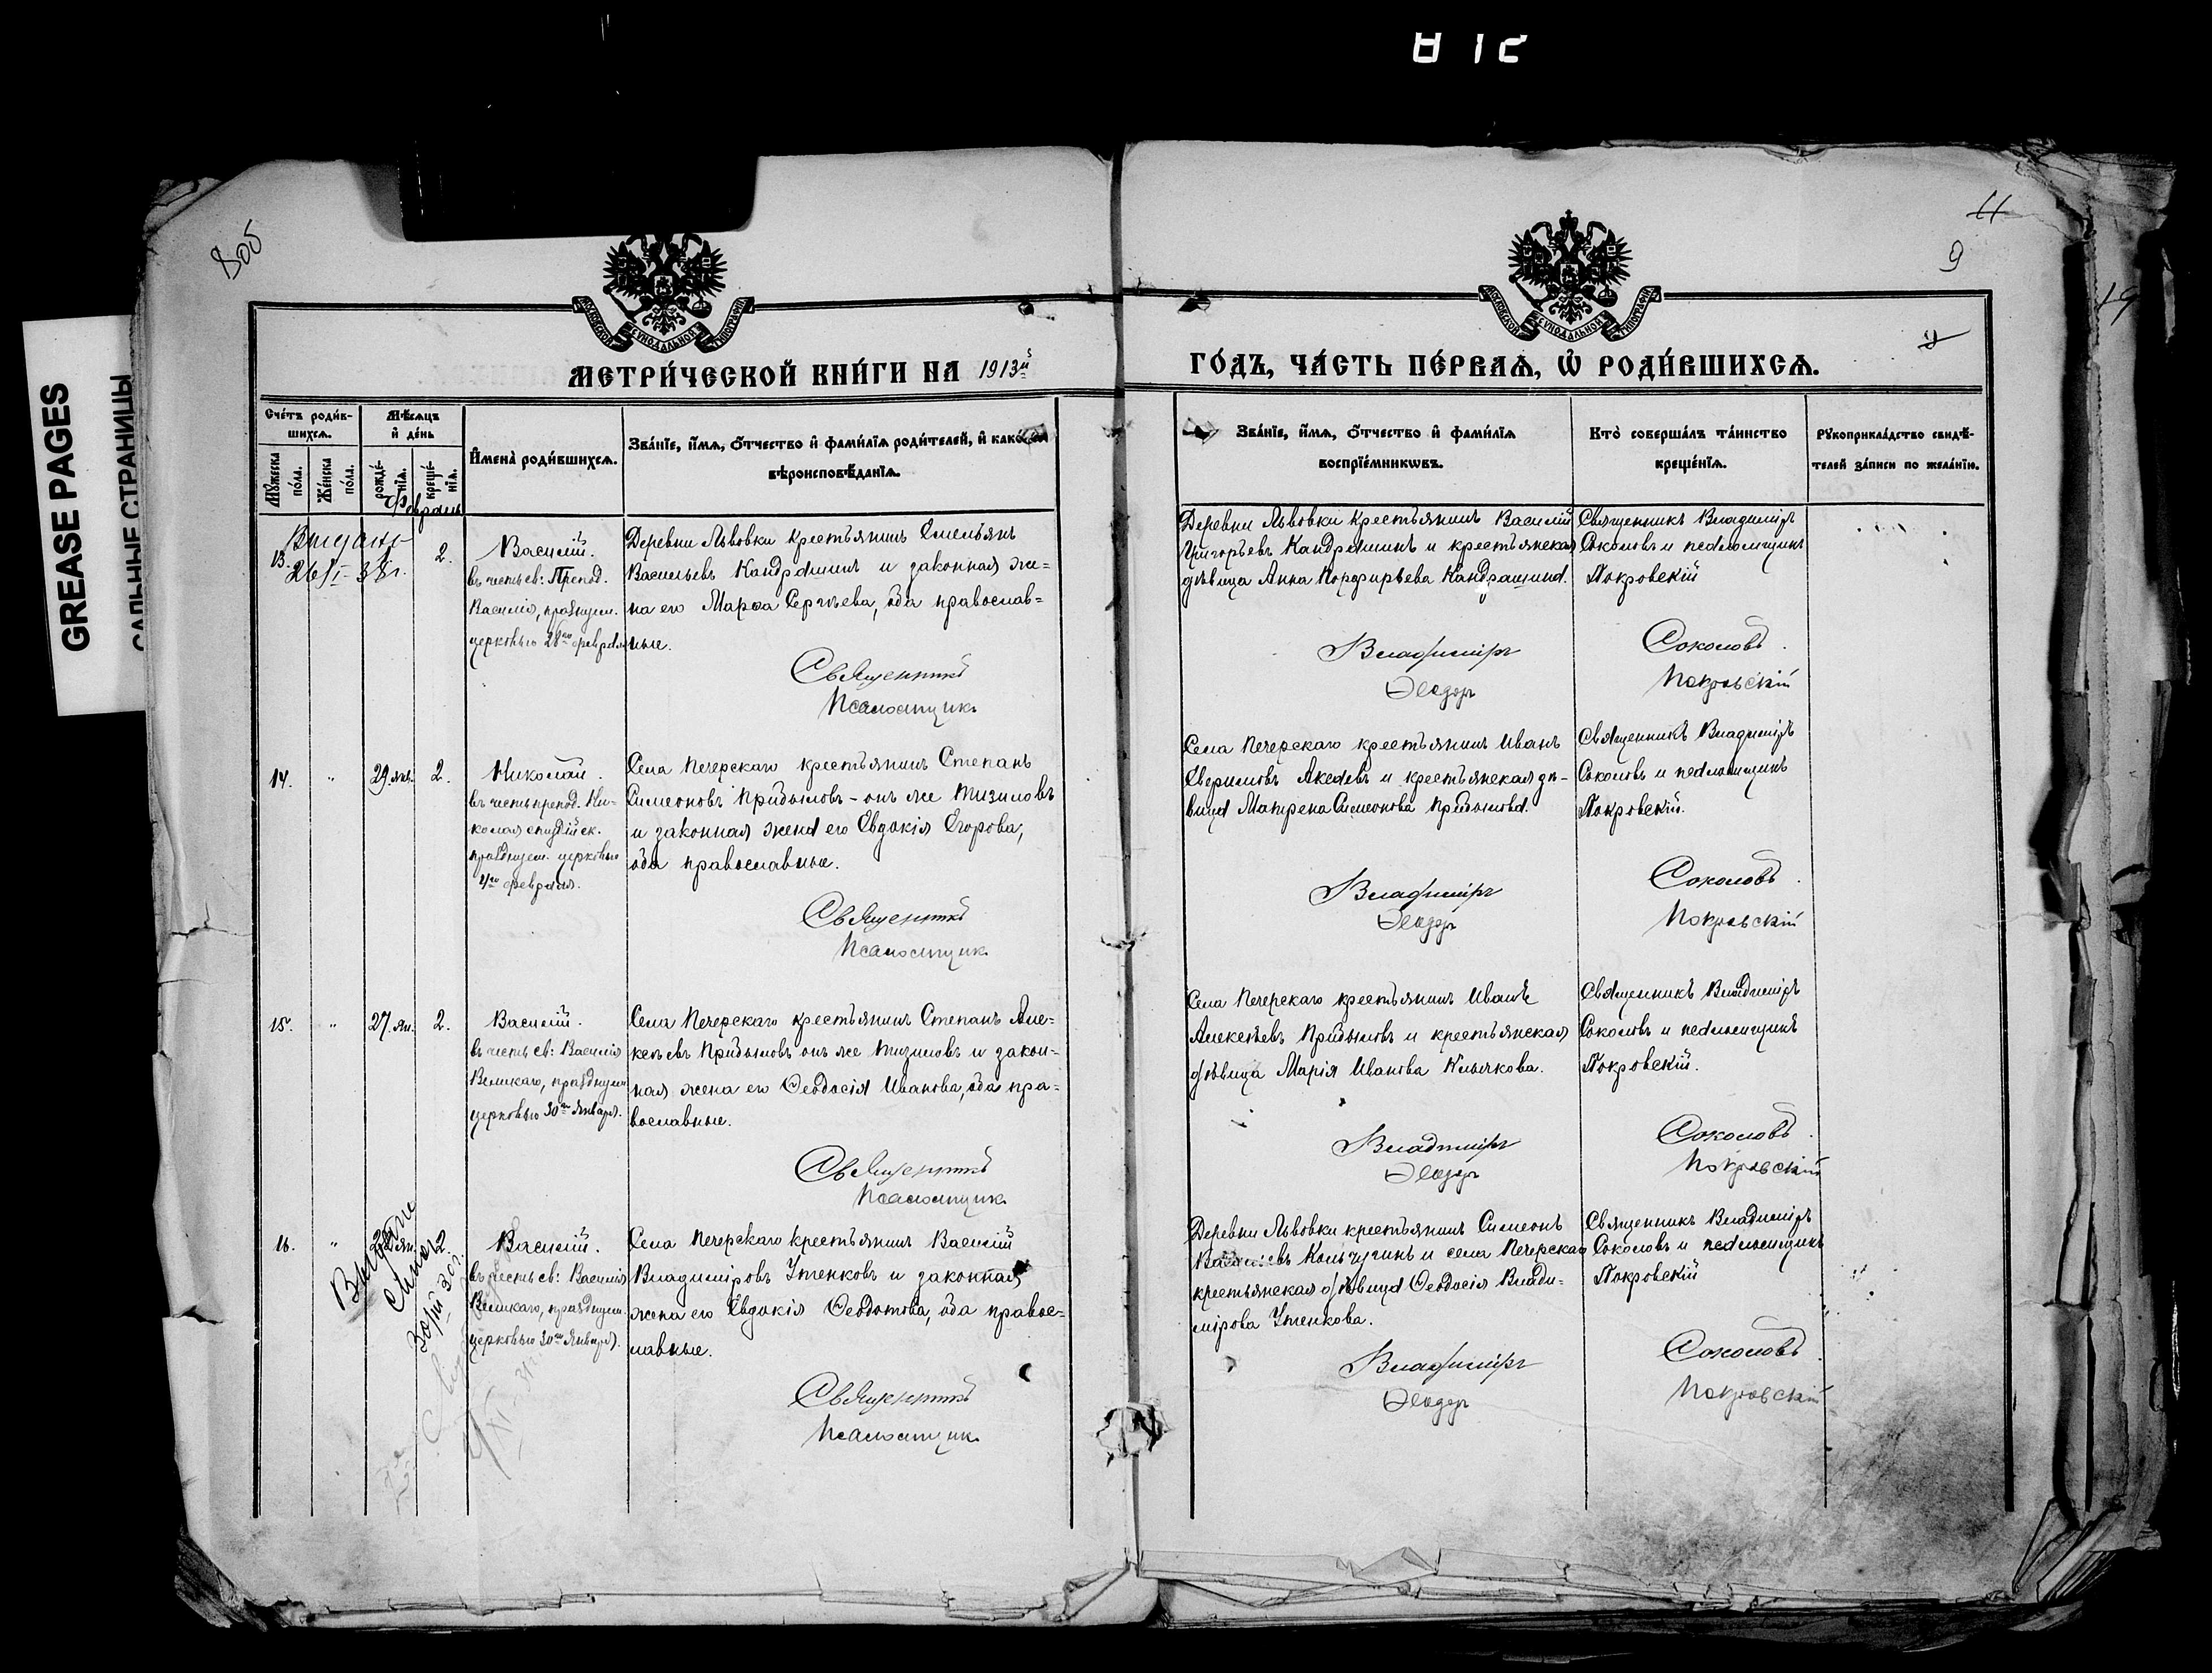 812
GREASE PAGES
САЛЬНЫЕ СТРАНИЦЫ
8об
11
9
19
МОСКОВСКОЙ СѴНОДАЛЬНОЙ ТИПОГРАФІИ
МОСКОВСКОЙ СѴНОДАЛЬНОЙ ТИПОГРАФІИ
МЕТРИ́ЧЕСКОЙ КНИ́ГИ НА 1913й
ГО́ДЪ, ЧА́СТЬ ПЕ́РВАѦ, Ѽ РОДИ́ВШИХСѦ.
Сче́тъ роди́в-
шихсѧ.
Мѣ́сѧцъ
и҆ де́нь
Мꙋ́жеска
по́ла.
Же́нска
по́ла.
рожде́-
нїѧ.
креще́-
нїѧ.
И҆мена̀ роди́вшихсѧ.
Зва́нїе, и҆́мѧ, ѻ҆́тчество и҆ фами́лїѧ роди́телей, и҆ како́гѡ
вѣроисповѣ́данїѧ.
Зва́нїе, и҆́мѧ, ѻ҆́тчество и҆ фами́лїѧ
воспрїе́мникѡвъ.
Кто̀ соверша́лъ та́инство
креще́нїѧ.
Рꙋкоприкла́дство свидѣ́-
телей за́писи по жела́нїю.
Февраль
13.
Выдано
26/I-38г.
2.
Василій.
въ честь св: Препод.
Василія, празднуем.
церковью 28го февраля
Деревни Львовки крестьянинъ Емельянъ
Васильевъ Кандрашинъ и законная же-
на его Марѳа Сергѣева, оба православ-
ные.
Священникъ
Псаломщик.
Деревни Львовки крестьянинъ Василій
Григорьевъ Кандрашинъ и крестьянская
дѣвица Анна Порфирьева Кандрашина.
Владиміръ
Ѳеодоръ
Священникъ Владиміръ
Соколовъ и псаломщикъ
Покровскій
Соколовъ.
Покровскій
14.
"
29. янв.
2.
Николай.
въ честь препод. Ни-
колая студійск.
празднуем. церковью
4го февраля.
Села Печерскаго крестьянинъ Степанъ
Симеоновъ Придыловъ - онъ же Тизиловъ
и законная жена его Евдокія Егорова,
оба православные.
Священникъ
Псаломщик.
Села Печерскаго крестьянинъ Иванъ
Севериновъ Акаевъ и крестьянская дѣ-
вица Матрена Симеонова Придылова.
Владиміръ
Ѳеодоръ
Священникъ Владиміръ
Соколовъ и псаломщикъ
Покровскій.
Соколовъ.
Покровскій
15.
"
27. ян.
2.
Василій.
въ честь св: Василія
Великаго, празднуем.
церковью 30го января.
Села Печерскаго крестьянинъ Степанъ Але-
ксѣевъ Придыловъ онъ же Тизиловъ и закон-
ная жена его Ѳеодосія Иванова, оба пра-
вославные.
Священникъ
Псаломщик
Села Печерскаго крестьянинъ Иванъ
Алексѣевъ Придыловъ и крестьянская
дѣвица Марія Иванова Клычкова.
Владиміръ
Ѳеодоръ
Священникъ Владиміръ
Соколовъ и псаломщикъ
Покровскій.
Соколовъ.
Покровскій
16.
"
ян.
2.
30/III 30г.
Василій.
въ честь св: Василія
Великаго, празднуем.
церковью 30го января.
Села Печерскаго крестьянинъ Василій
Владиміровъ Утенковъ и законная
жена его Евдокія Ѳеодотова, оба правос-
лавные.
Священникъ
Псаломщик
Деревни Львовки крестьянинъ Симеонъ
Кольчугинъ и села Печерскаго
крестьянская дѣвица Ѳеодосія Влади-
мірова Утенкова.
Владиміръ
Ѳеодоръ
Священникъ Владиміръ
Соколовъ и псаломщикъ
Покровскій
Соколовъ.
Покровскій